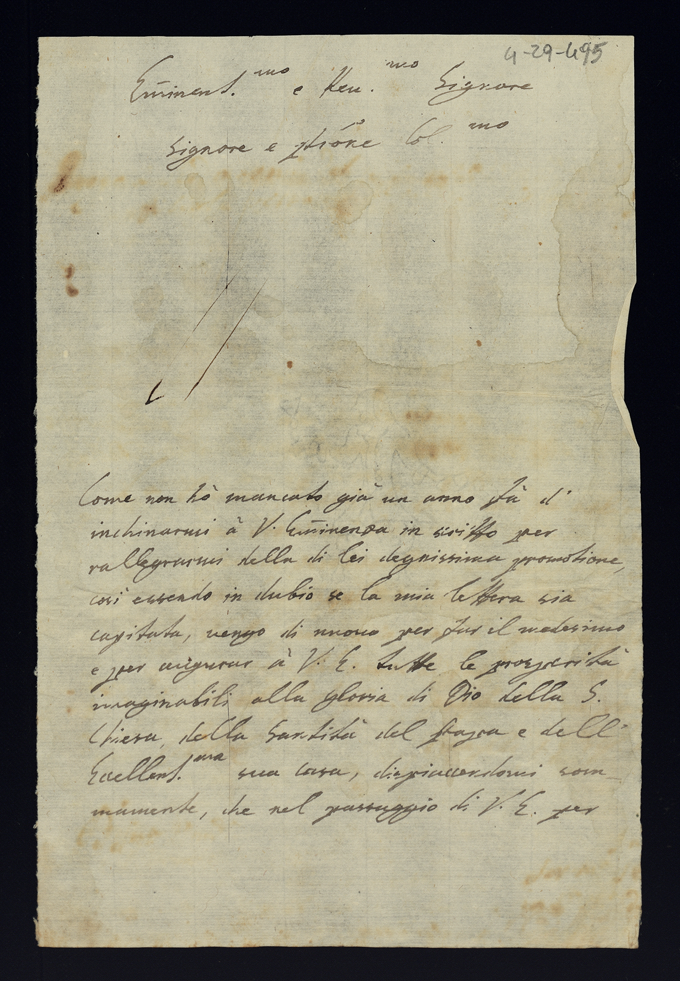 4-29-495
Em̃inent.mo e Reu.mo Signore
Signore e Pr̃one Col.mo
Come non hò mancato già un anno fà d'
inchinarmi à V. Em̃inenza in scritto per
rallegrarmi della di lei degnissima promotione,
così essendo in dubio se la mia lettera sia
capitata, vengo di nuovo per far il medesimo
e per augurar à V. E. tutte le prosperità
imaginabili alla gloria di Dio della S.
Chiesa, della Santità del Papa e dell'
Eccellent.ma sua Casa, dispiacendomi som-
mamente, che nel passaggio di V. E. per